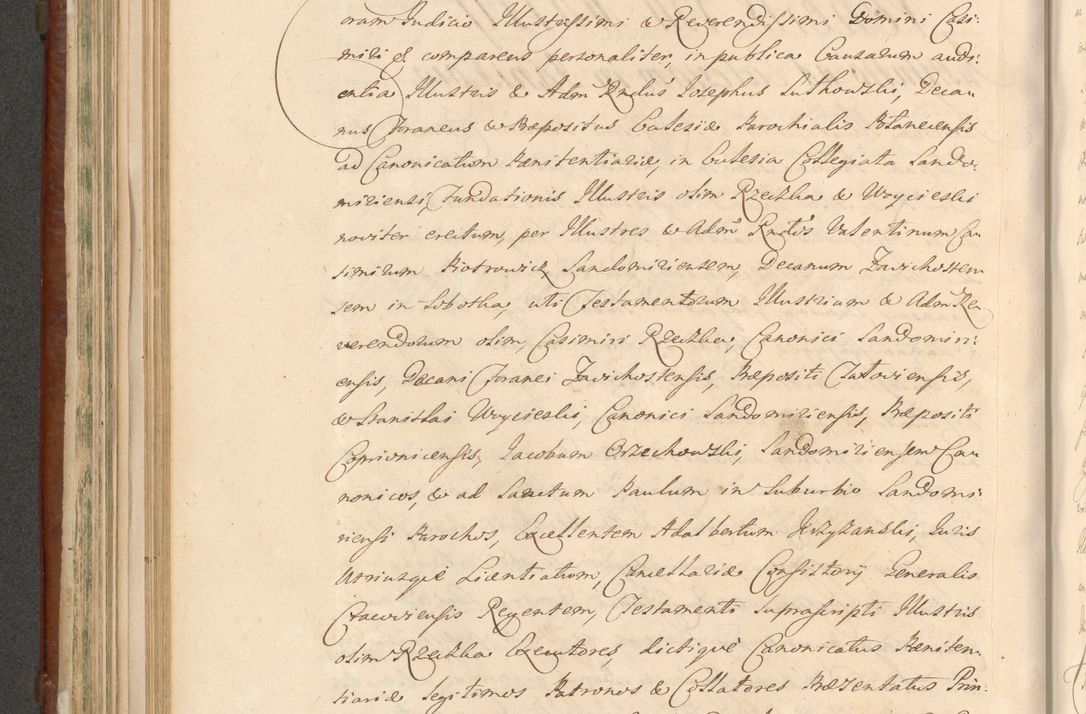 oram Judicio Illustrissimi & Reverendissimi Domini Casi:
miri & comparens personaliter, in publica Causarum audi:
entia Illustris & Adm Rndus Josephus Luthowski, Decan
nus Foraneus & Præpositus Eclesiæ Parochialis Polanecensis
ad Canonicatum Pænitentiariæ, in Eclesia Collegiata Sando:
miriensi, Fundationis Illustris olim Rzeczka & Woycieski
noviter erectum, per Illustres & Adm Rndos Valentinum Ca
simirum Piotrowicz Sandomiriensem, Decanum Zavichosten
sem in Sobotka, uti Testamentorum Illustrium & Adm Re
verendorum olim, Casimiri Rzeczka, Canonici Sandomiri:
ensis, Decani Foranei Zavichostensis, Præpositi
& Stanislai Woycieski, Canonici Sandomiriensis, Præpositi
Coprivnicensis, Jacobum Orzechowski, Sandomiriensem Ca
nonicos, & ad Sanctum Paulum in Suburbio Sandomi:
riensi Parochos, Excellentem Adalbertum Juris
Utriusque Licentiatum, Cancellariæ Consistorij Generalis
Cracoviensis Regentem, Testamenti suprascripti Illustris
olim Rzeczka Executores, dictique Canonicatus Pæniten:
tiariæ legitimos Patronos & Collatores Præsentatus Prin: